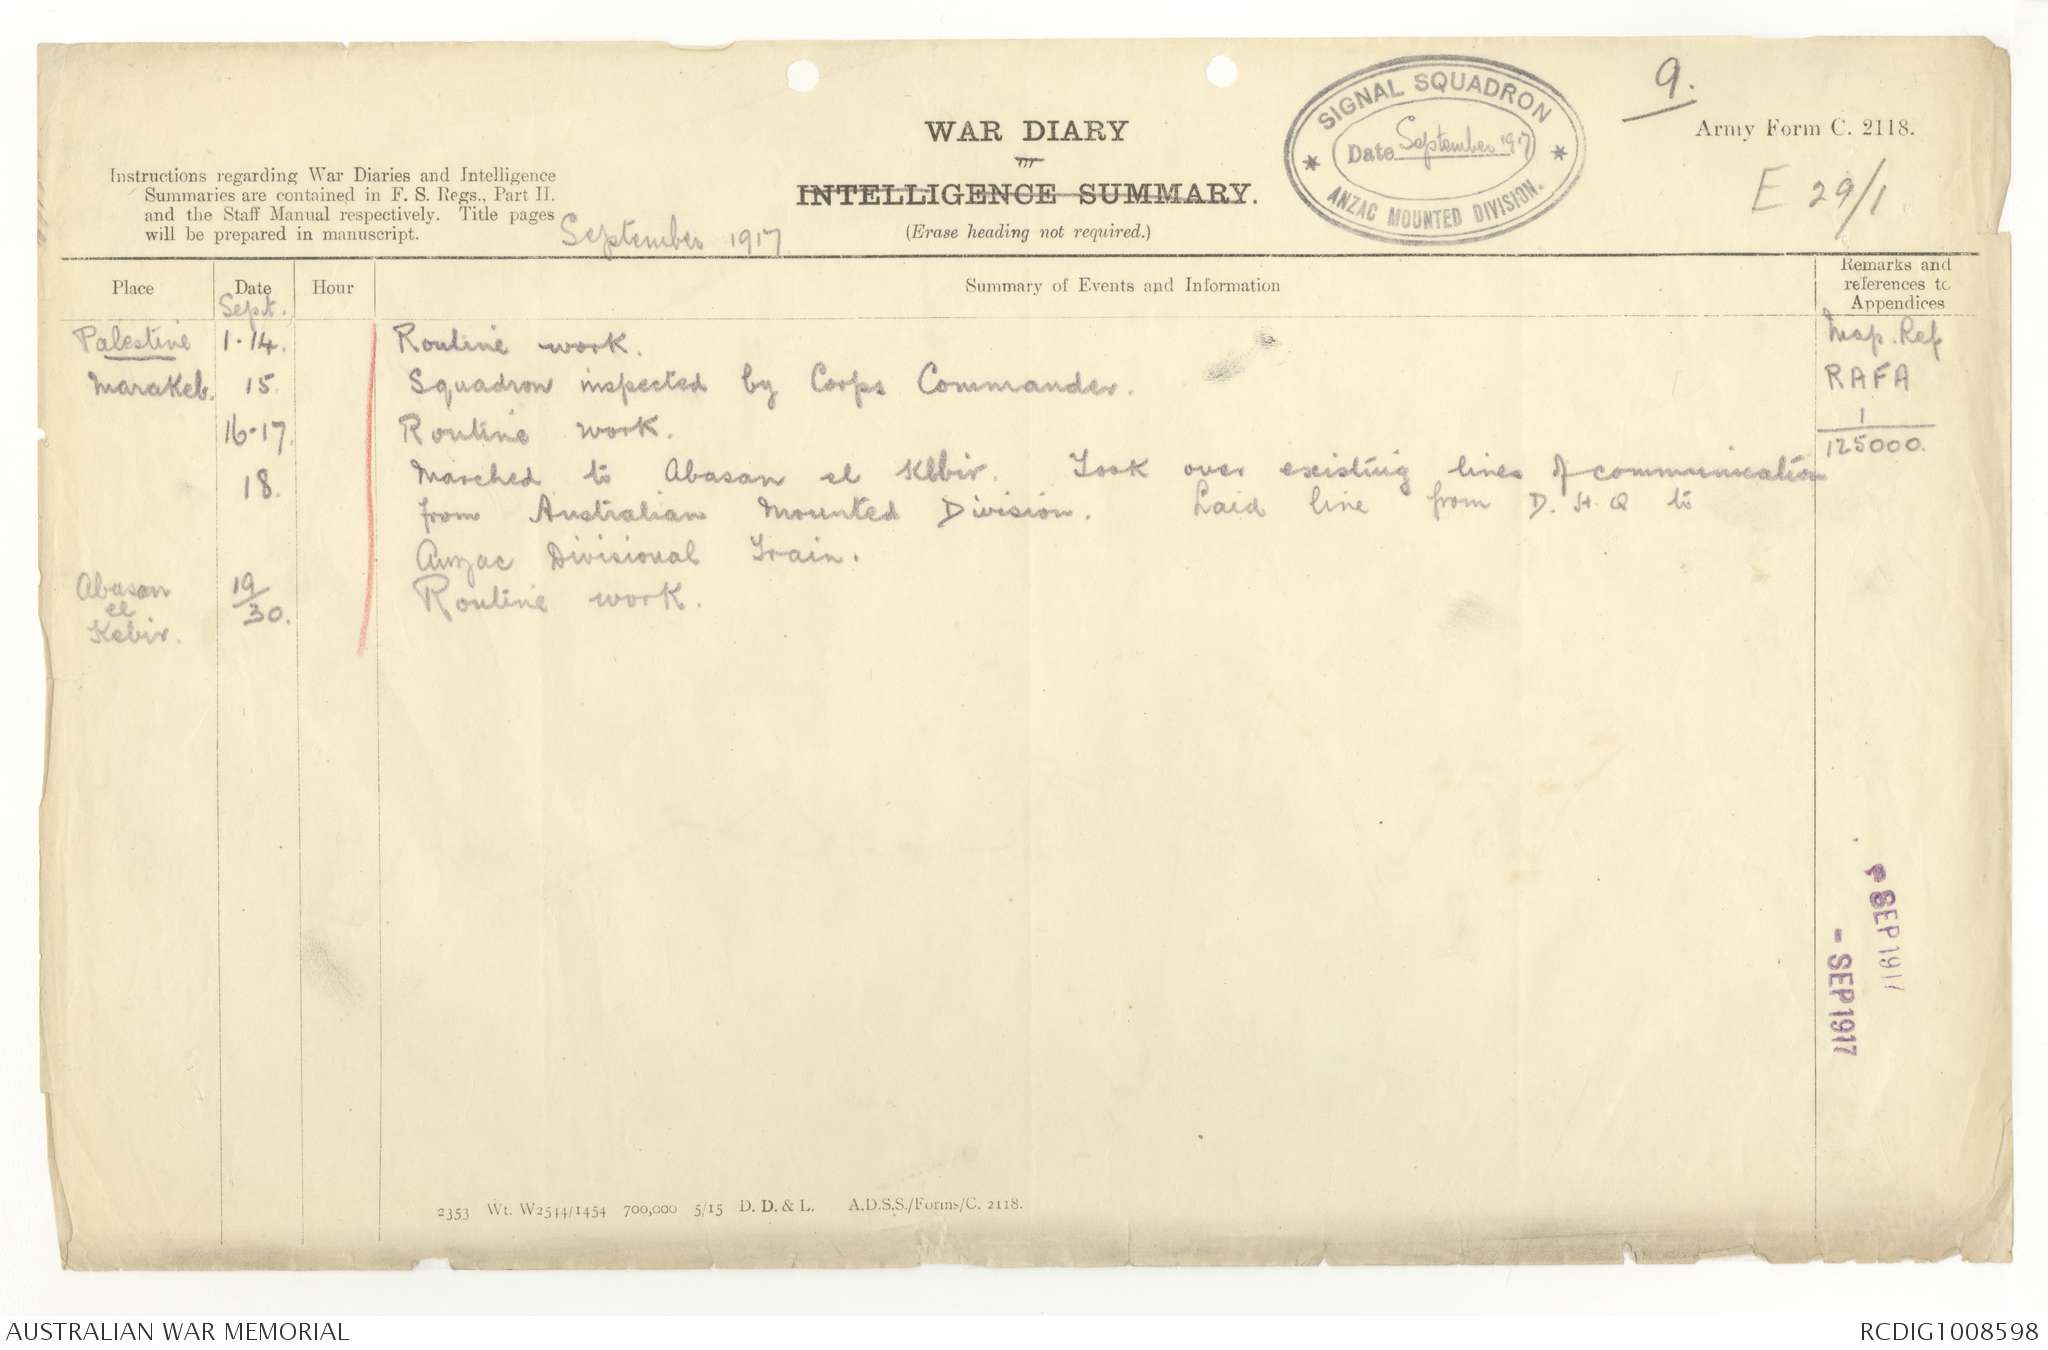 SIGNAL SQUADRON
Date September 1917
ANZAC MOUNTED DIVISION.
9.
Army Form C. 2118.
E 29/1
WAR DIARY
or
INTELLIGENCE SUMMARY.
(Erase heading not required.)
Instructions regarding War Diaries and Intelligence
Summaries are contained in F. S. Regs., Part II.
and the Staff Manual respectively. Title pages
will be prepared in manuscript.
September 1917
Place Date Hour Summary of Events and Information Remarks and references to Appendices
Sept.
Palestine 1-14. Routine work. Map. Ref
Marakeb. 15. Squadron inspected by Corps Commander. RAFA
16-17. Routine work. 1
125000.
18. Marched to Abasan el Kebir. Took over existing lines of communication
from Australian Mounted Division. Laid line from D.H.Q to
Anzac Divisional Train.
Abasan el Kebir. 19/30. Routine work.
SEP 1917
- SEP 1917
2353 Wt. W2544/1454 700,000 5/15 D. D. & L. A.D.S.S./Forms/C. 2118.
AUSTRALIAN WAR MEMORIAL
RCDIG1008598